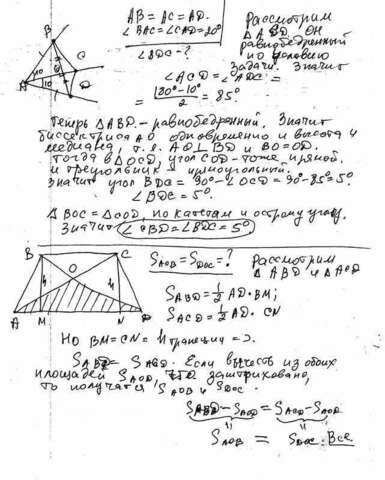 AB = AC = AD.
∠BAC = ∠CAD = 20°
∠BDC - ?
Рассмотрим
△ABD. ОН
равнобедренный
по условию
задачи. Значит
∠ACD = ∠ADC =
= (180° - 10°)/2 = 85°.
Теперь △ABD. - равнобедренный, значит
биссектриса AO одновременно и высота и
медиана, т.е. AO ⊥ BD и BO = OD.
Тогда в △OCD, угол COD - тоже прямой
и треугольник - прямоугольный.
Значит угол BDC = 90° - ∠OCD = 90° - 85° = 5°
∠BDC = 5°.
△BOC = △COD, по катетам и острому углу.
Значит ∠CBD = ∠BDC = 5°
S AOB = S DOC = ?
Рассмотрим
△ABD и △ACD
S ABD = 1/2 AD · BM;
S ACD = 1/2 AD · CN
Но BM = CN = H трапеции =>
S ABD = S ACD. Если вычесть из обоих
площадей S AOD, заштриховано,
то получатся S AOB и S DOC.
S ABD - S AOD = S ACD - S AOD
S AOB = S DOC. Все
A
B
C
D
O
10
10
B
C
O
H
H
A
M
N
D